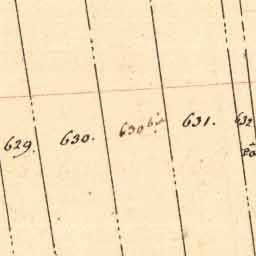 629. 630. 630 bis. 631. 632